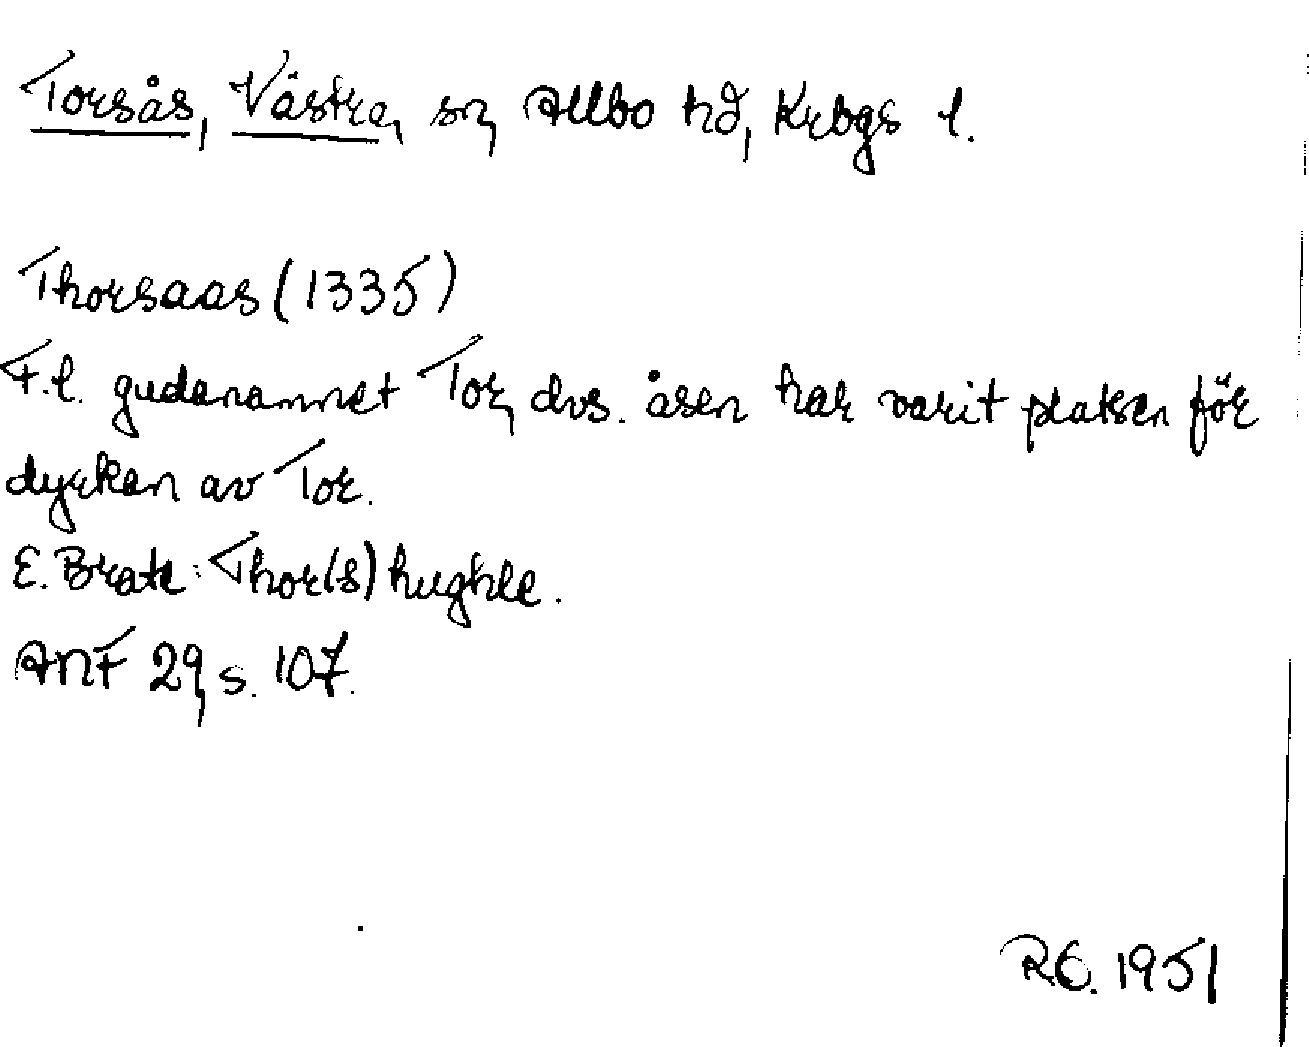 Torsås, Västra, sn, Allbo hd, Krbgs l.
Thorsaas (1335)
F.l. gudanamnet Tor, dvs. åsen har varit platsen för
dyrkan av Tor.
E. Brate: Thor(s)hughle.
ANF 29, s. 107.
RG. 1951